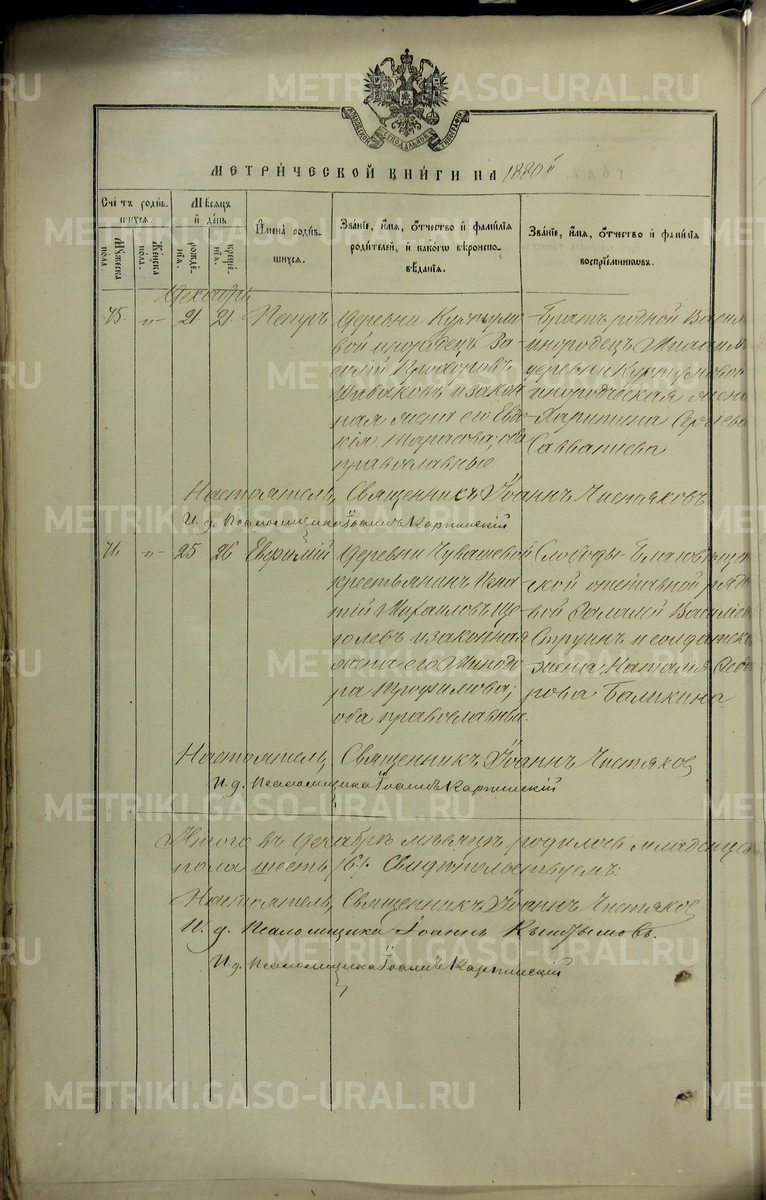 МЕТРИ́ЧЕСКОЙ КНИ́ГИ НА 1880й
Сче́тъ роди́в-
шихся.
Му́жеска
по́ла.
Же́нска
по́ла.
Мѣ́сяцъ
и҆ де́нь
рожде́-
нїѧ.
креще́-
нїѧ.
И҆мена̀ роди́в-
шихся.
Зва́нїе, и҆́мѧ, ѻ҆́тчество и҆ фами́лїѧ
роди́телей, и҆ како́гѡ вѣроиспо-
вѣ́данїѧ.
Зва́нїе, и҆́мѧ, ѻ҆́тчество и҆ фами́лїѧ
воспрїе́мниковъ.
Декабрь
75. -"- 21 21. Петръ
Деревни Куртумо-
вой инородецъ
Прохоровъ
и закон
ная жена его Евдо-
кія Тарасова, оба
православные
Братъ родной Васил
инородецъ
деревни Куртумовой
инородческая жена
Харитина Сергѣева
Савватіева
Настоятель, Священникъ Іоаннъ Чистяковъ
И. д. Псаломщика Іоаннъ Карпинскій
76 -"- 25 26 Евфимій
Деревни Чувашевой
крестьянинъ Игна
тій Михаиловъ Що
голевъ и законная
жена его Минодо
ра Трофимова,
оба православные.
Слободы Благовѣщен
ской отставной рядо
вой Василіе
Струин и солдатск
жена Наталія Ѳедо
рова Балакина
Настоятель, Священникъ Іоаннъ Чистяков
И. д. Псаломщика Іоаннъ Карпинскій
Итого въ Декабрѣ мѣсяцѣ родилось младенце
пола шесть /6/. Свидѣтельствуемъ:
Настоятель, Священникъ Іоаннъ Чистяков
И. д. Псаломщика Іоаннъ Кыштымовъ.
И. д. Псаломщика Іоаннъ Карпинскій
METRIKI.GASO-URAL.RU